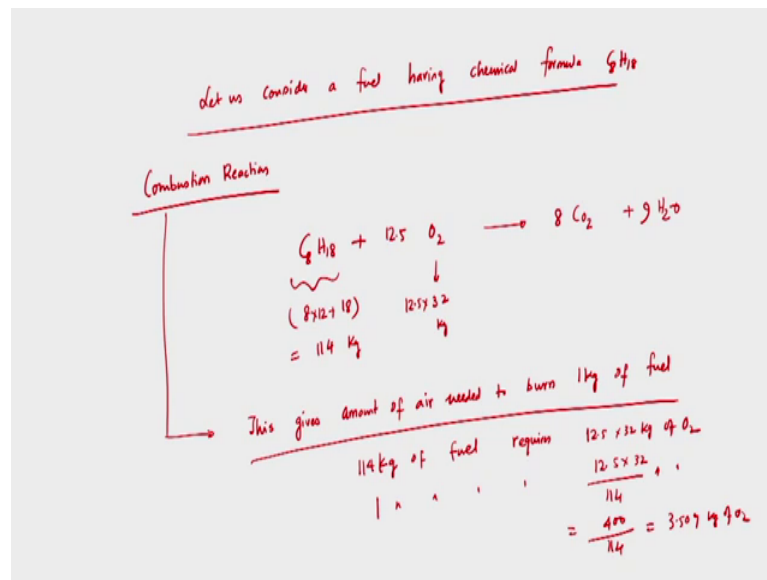 Let us consider a fuel having chemical formula C8H18
Combustion Reaction
C8H18 + 12.5 O2 → 8 CO2 + 9 H2O
(8x12+18) 12.5x32
= 114 Kg kg
This gives amount of air needed to burn 1kg of fuel
114kg of fuel requires 12.5 x32 kg of O2
1 " " " " 12.5x32/114 " "
= 400/114 = 3.509 kg of O2